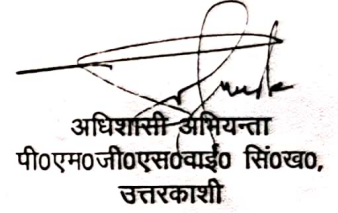 अधिशासी अभियन्ता
पी०एम०जी०एस०वाई० सिं०ख०,
उत्तरकाशी